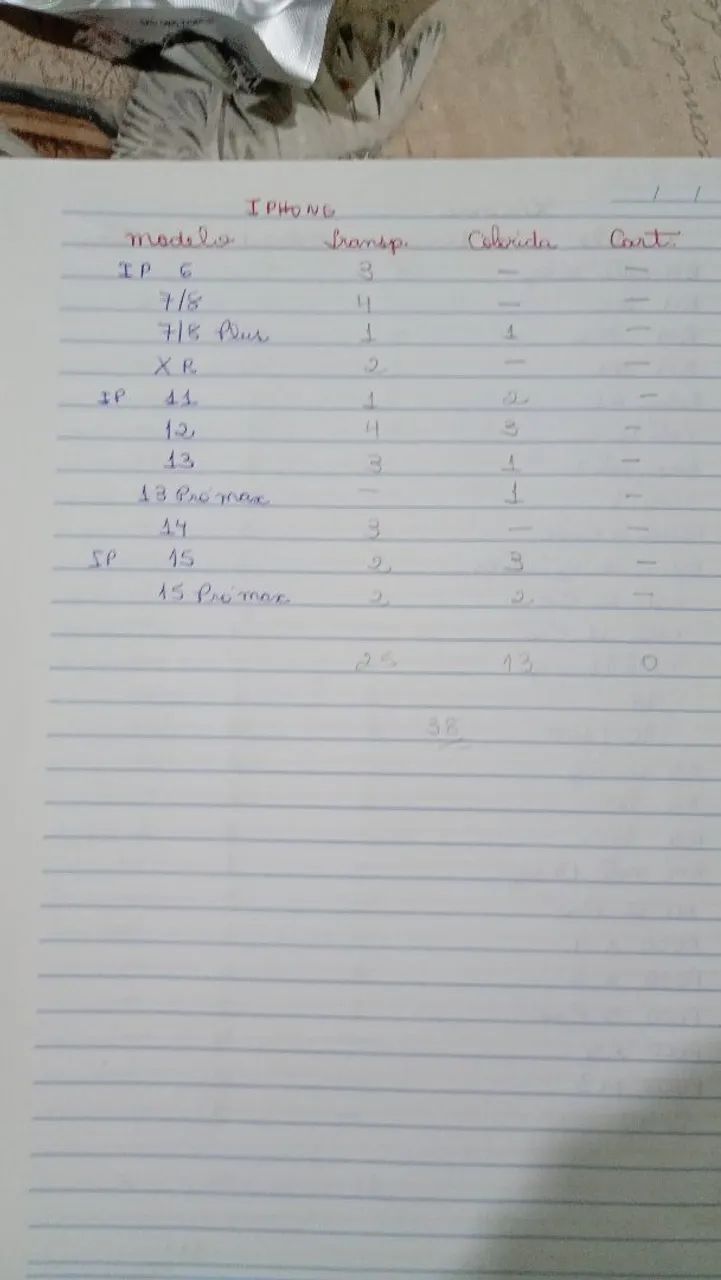 / /
IPHONE
modelo Transp. Colorida Cart.
IP 6 3 — —
7/8 4 — —
7/8 Plus 1 1 —
XR 2 — —
IP 11 1 2 —
12 4 3 —
13 3 1 —
13 Pro max — 1 —
14 3 — —
IP 15 2 3 —
15 Pro max 2 2 —
25 13 0
38